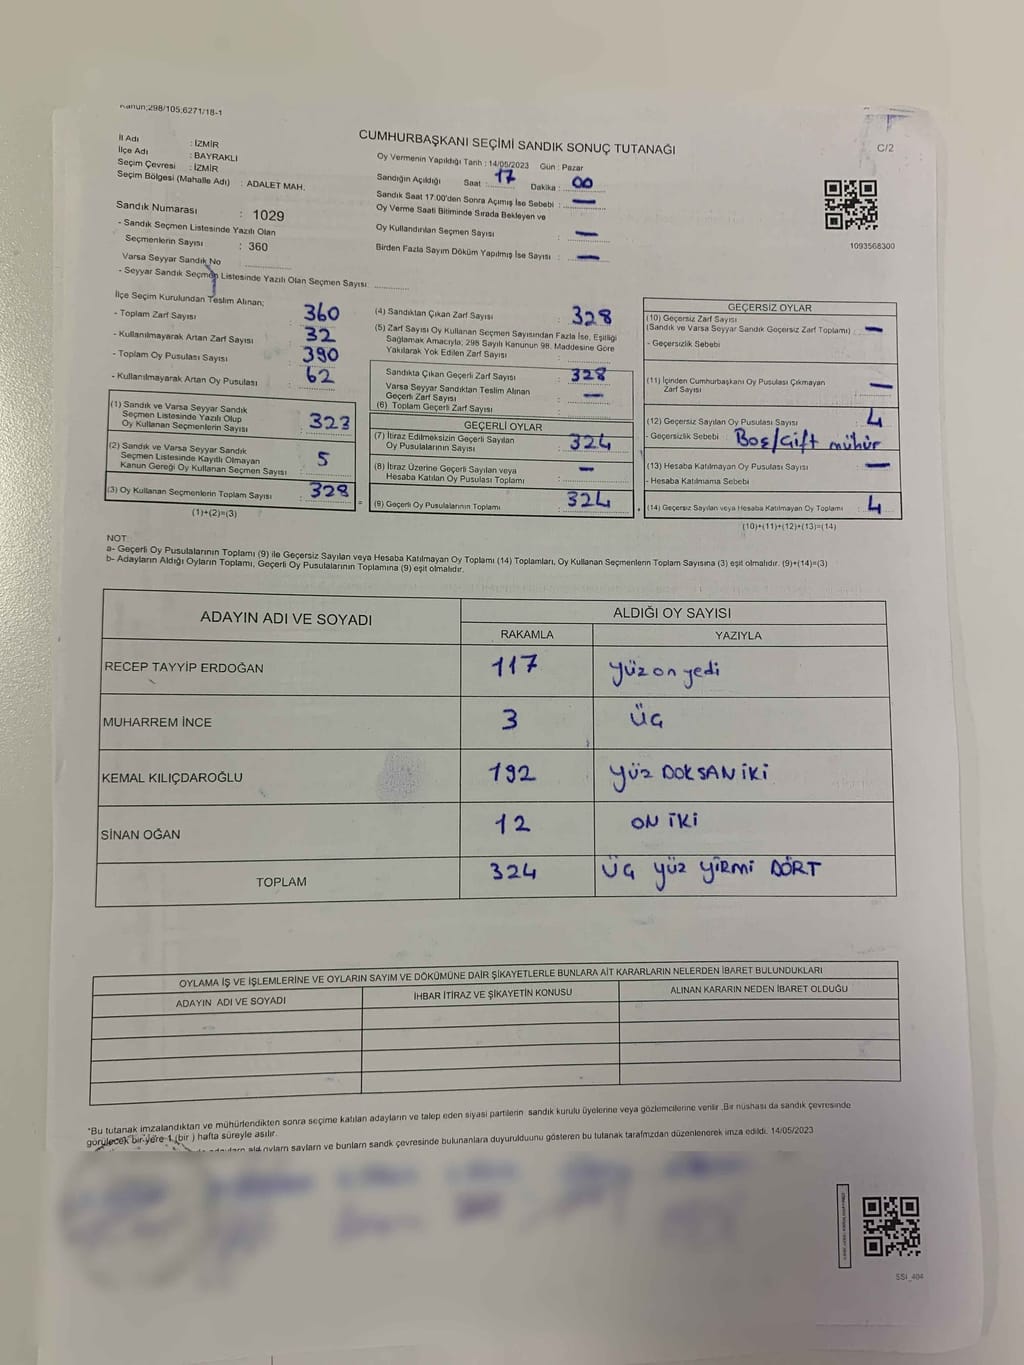 Kanun;298/105,6271/18-1
CUMHURBAŞKANI SEÇİMİ SANDIK SONUÇ TUTANAĞI
C/2
İl Adı : İZMİR
İlçe Adı : BAYRAKLI
Seçim Çevresi : İZMİR
Seçim Bölgesi (Mahalle Adı) : ADALET MAH.
Sandık Numarası : 1029
- Sandık Seçmen Listesinde Yazılı Olan
Seçmenlerin Sayısı : 360
Varsa Seyyar Sandık No
- Seyyar Sandık Seçmen Listesinde Yazılı Olan Seçmen Sayısı:
Oy Vermenin Yapıldığı Tarih : 14/05/2023 Gün : Pazar
Sandığın Açıldığı Saat : 17 Dakika : 00
Sandık Saat 17.00'den Sonra Açımış İse Sebebi : —
Oy Verme Saati Bitiminde Sırada Bekleyen ve
Oy Kullandırılan Seçmen Sayısı : —
Birden Fazla Sayım Döküm Yapılmış İse Sayısı : —
1093568300
İlçe Seçim Kurulundan Teslim Alınan;
- Toplam Zarf Sayısı : 360
- Kullanılmayarak Artan Zarf Sayısı : 32
- Toplam Oy Pusulası Sayısı : 390
- Kullanılmayarak Artan Oy Pusulası : 62
(1) Sandık ve Varsa Seyyar Sandık
Seçmen Listesinde Yazılı Olup
Oy Kullanan Seçmenlerin Sayısı : 323
(2) Sandık ve Varsa Seyyar Sandık
Seçmen Listesinde Kayıtlı Olmayan
Kanun Gereği Oy Kullanan Seçmen Sayısı : 5
(3) Oy Kullanan Seçmenlerin Toplam Sayısı : 328
(1)+(2)=(3)
(4) Sandıktan Çıkan Zarf Sayısı : 328
(5) Zarf Sayısı Oy Kullanan Seçmen Sayısından Fazla İse, Eşitliği
Sağlamak Amacıyla; 298 Sayılı Kanunun 98. Maddesine Göre
Yakılarak Yok Edilen Zarf Sayısı :
Sandıkta Çıkan Geçerli Zarf Sayısı : 328
Varsa Seyyar Sandıktan Teslim Alınan
Geçerli Zarf Sayısı : —
(6) Toplam Geçerli Zarf Sayısı :
GEÇERLİ OYLAR
(7) İtiraz Edilmeksizin Geçerli Sayılan
Oy Pusulalarının Sayısı : 324
(8) İtiraz Üzerine Geçerli Sayılan veya
Hesaba Katılan Oy Pusulası Toplamı : —
(9) Geçerli Oy Pusulalarının Toplamı : 324
GEÇERSİZ OYLAR
(10) Geçersiz Zarf Sayısı
(Sandık ve Varsa Seyyar Sandık Geçersiz Zarf Toplamı) : —
- Geçersizlik Sebebi
(11) İçinden Cumhurbaşkanı Oy Pusulası Çıkmayan
Zarf Sayısı : —
(12) Geçersiz Sayılan Oy Pusulası Sayısı : 4
- Geçersizlik Sebebi : Boş/Çift mühür
(13) Hesaba Katılmayan Oy Pusulası Sayısı : —
- Hesaba Katılmama Sebebi
(14) Geçersiz Sayılan veya Hesaba Katılmayan Oy Toplamı : 4
(10)+(11)+(12)+(13)=(14)
NOT:
a- Geçerli Oy Pusulalarının Toplamı (9) ile Geçersiz Sayılan veya Hesaba Katılmayan Oy Toplamı (14) Toplamları, Oy Kullanan Seçmenlerin Toplam Sayısına (3) eşit olmalıdır. (9)+(14)=(3)
b- Adayların Aldığı Oyların Toplamı, Geçerli Oy Pusulalarının Toplamına (9) eşit olmalıdır.
ADAYIN ADI VE SOYADI
ALDIĞI OY SAYISI
RAKAMLA YAZIYLA
RECEP TAYYİP ERDOĞAN 117 yüz on yedi
MUHARREM İNCE 3 üç
KEMAL KILIÇDAROĞLU 192 yüz DOKSAN iKi
SİNAN OĞAN 12 ON iKi
TOPLAM 324 üç yüz yirmi DÖRT
OYLAMA İŞ VE İŞLEMLERİNE VE OYLARIN SAYIM VE DÖKÜMÜNE DAİR ŞİKAYETLERLE BUNLARA AİT KARARLARIN NELERDEN İBARET BULUNDUKLARI
ADAYIN ADI VE SOYADI İHBAR İTİRAZ VE ŞİKAYETİN KONUSU ALINAN KARARIN NEDEN İBARET OLDUĞU
*Bu tutanak imzalandıktan ve mühürlendikten sonra seçime katılan adayların ve talep eden siyasi partilerin sandık kurulu üyelerine veya gözlemcilerine verilir .Bir nüshası da sandık çevresinde
görülecek bir yere 1 (bir ) hafta süreyle asılır.
ald oyların sayların ve bunların sandk çevresinde bulunanlara duyurulduunu gösteren bu tutanak tarafmzdan düzenlenerek imza edildi. 14/05/2023
SSI_404